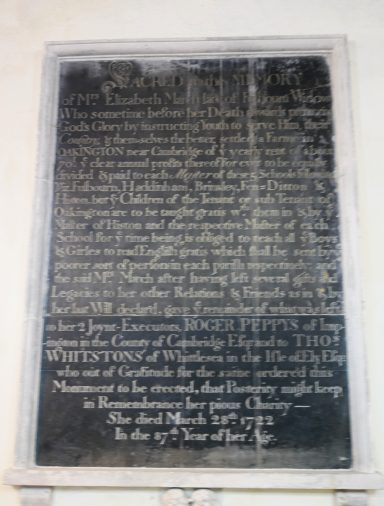 SACRED to the MEMORY
of Mrs. Elizabeth March late of Fulbourn Widow
Who sometime before her Death towards
God's Glory by instructing Youth to serve Him, their
Country, & themselves the better, settled a Farm in
OAKINGTON near Cambridge of ye yearly rent of about
70l. ye clear annual profits thereof for ever to be equally
divided & paid to each Master of these 5 Schools following
Viz. Fulbourn, Haddinham, Brinsley, Fen=Ditton &
Histon. her ye Children of the Tenant or sub Tenant of
Oakington are to be taught gratis wth. them in & by ye
Master of Histon and the respective Master of each
School for ye time being, is obliged to teach all ye Boys
& Girles to read English gratis which shall be sent by ye
poorer sort of persons in each parish respectively and
the said Mrs. March after having left several gifts and
Legacies to her other Relations & Friends as in & by
her last Will declar'd, gave ye remainder of what was left
to her 2 Joynt-Executors, ROGER PEPPYS of Imp-
ington in the County of Cambridge Esqr. and to THOs.
WHITSTONS of Whittlesea in the Isle of Ely Esqr.
who out of Gratitude for the same order'd this
Monument to be erected, that Posterity might keep
in Remembrance her pious Charity —
She died March 28th. 1722
In the 87th. Year of her Age.